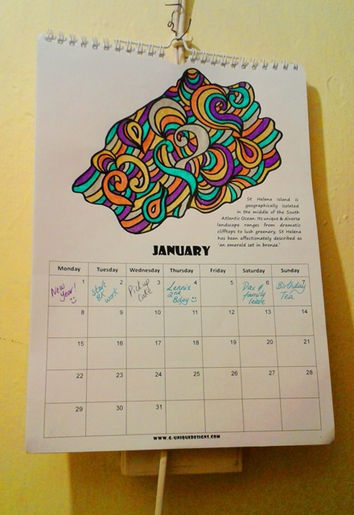 St Helena Island is
geographically isolated
in the middle of the South
Atlantic Ocean. Its unique & diverse
landscape ranges from dramatic
clifftops to lush greenery. St Helena
has been affectionately described as
'an emerald set in bronze.'
JANUARY
Monday Tuesday Wednesday Thursday Friday Saturday Sunday
1 2 3 4 5 6 7
New Start Pick up Birthday
Year! work Cake 2nd family Tea
Bday
8 9 10 11 12 13 14
15 16 17 18 19 20 21
22 23 24 25 26 27 28
29 30 31
WWW.G-UNIQUEDESIGNS.COM